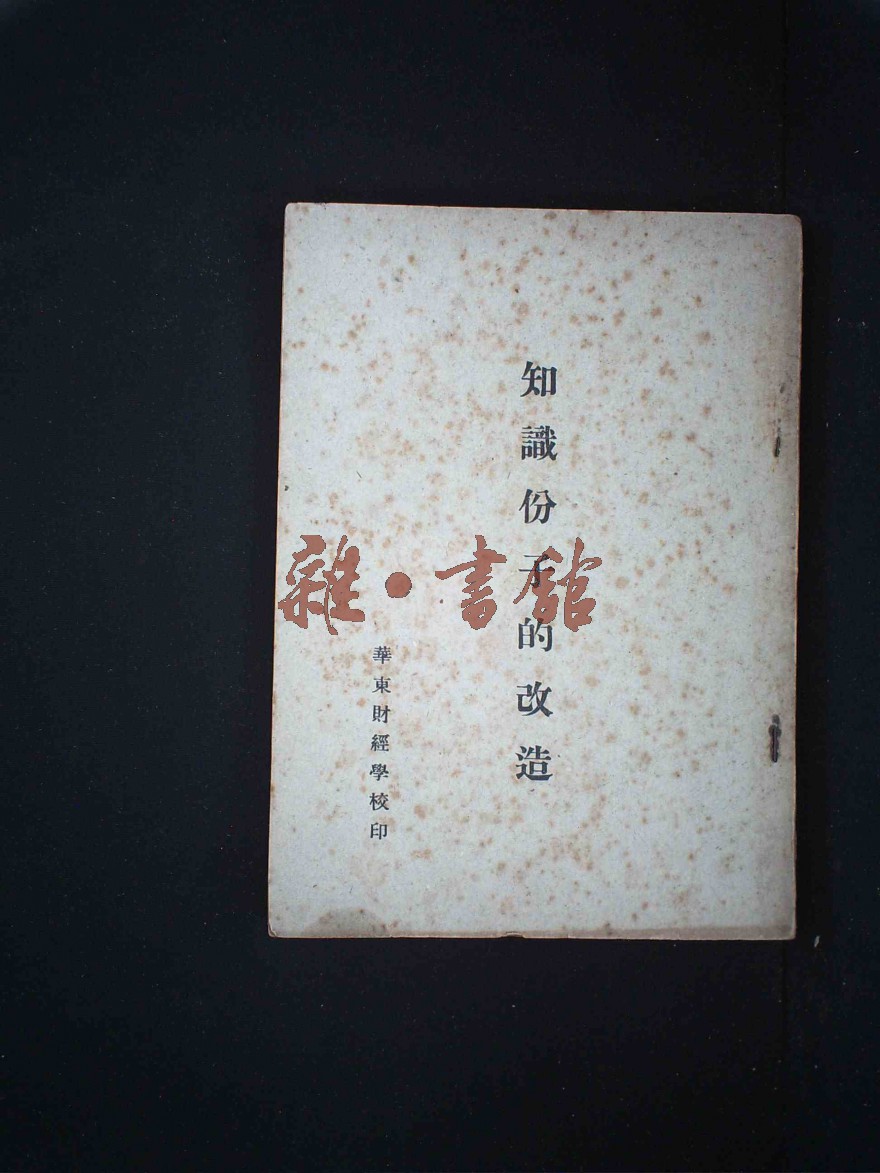 知識份子的改造
華東財經學校印
雜·書館